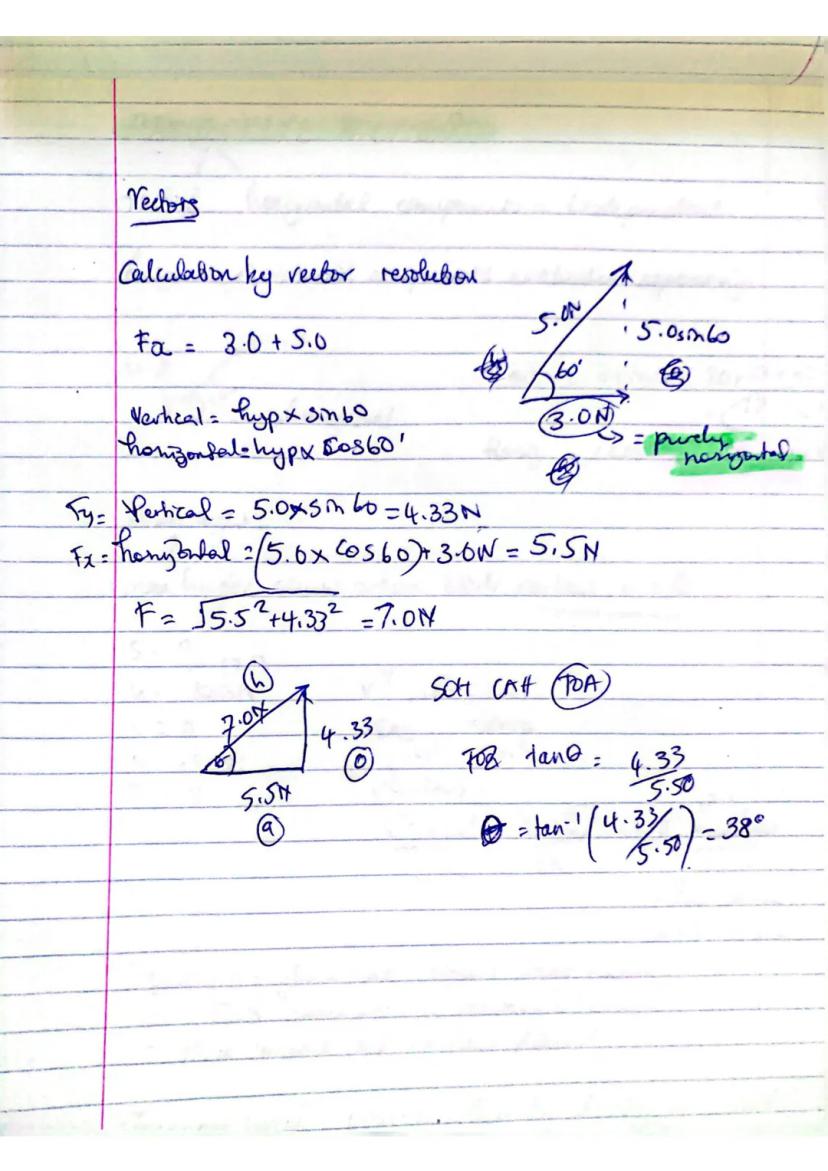 Vectors
Calculation by vector resolution
Fx = 3.0 + 5.0
5.0N
5.0sin60
60°
3.0N
= purely
horizontal
Vertical = hyp x sin60
horizontal = hyp x Cos60°
Fy = Vertical = 5.0 x sin 60 = 4.33N
Fx = horizontal = (5.0 x Cos60) + 3.0N = 5.5N
F = √5.5² + 4.33² = 7.0N
h
7.0N
4.33
o
θ
5.5N
a
SOH CAH TOA
tanθ = 4.33/5.50
θ = tan⁻¹ (4.33/5.50) = 38°